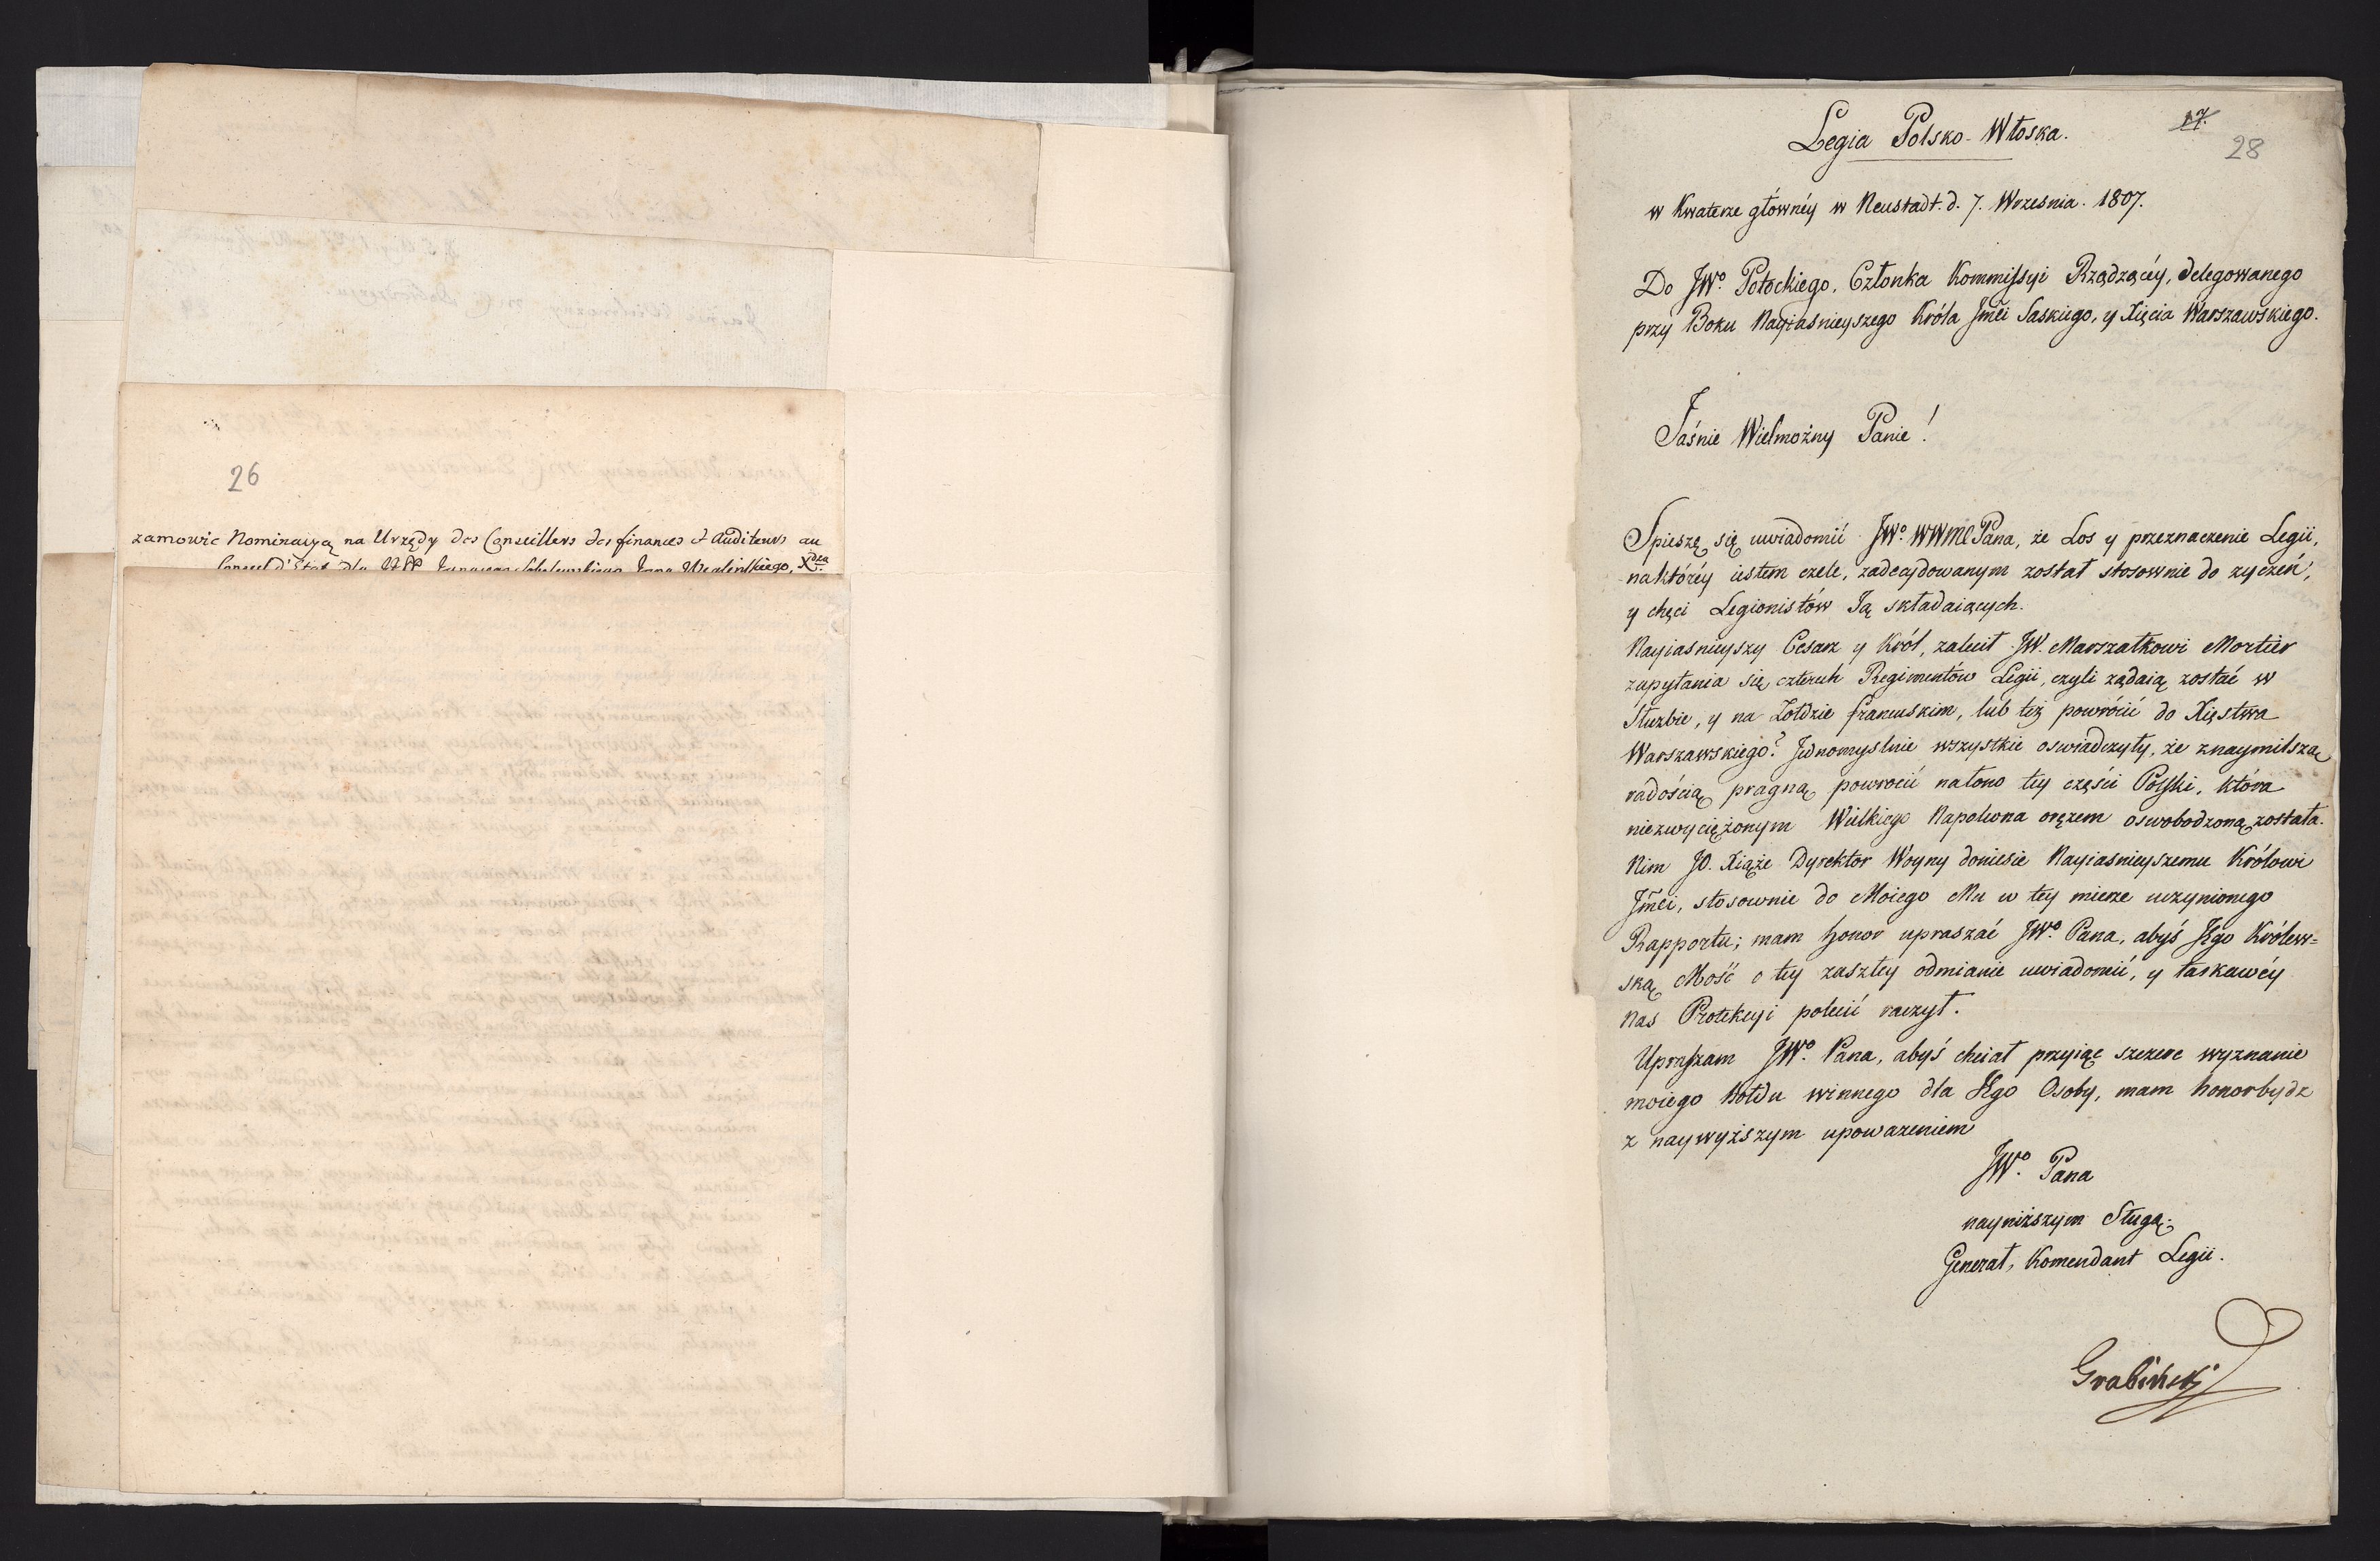 26
zamowic Nominacyą na Urzędy des Conseillers des finances et Auditeurs au
Conseil d'Etat dla
17.
28
Legia Polsko-Włoska.
w Kwaterze główney w Neustadt. d. 7. Wrzesnia. 1807.
Do JWº. Potockiego, Członka Kommissyi Rządzącéy, delegowanego
przy Boku Nayiasnieyszego Króla Jmci Saskiego, y Xięcia Warszawskiego.
Jaśnie Wielmożny Panie!
Spieszę się uwiadomić JWº. WWMC Pana, że Los y przeznaczenie Legii,
naktóréy iestem czele, zadecydowanym został stosownie do zyczeń,
y chęci Legionistów Ją składaiących.
Nayiasnieyszy Cesarz y Król, zalecił JW. Marszałkowi Mortier
zapytania się czterech Regimentów Legii, czyli ządaią zostać w
Słuzbie, y na Zołdzie francuskim, lub też powrócić do Xięstwa
Warszawskiego? Jednomyslnie wszystkie oswiadczyły, że znaymilszą
radością pragną powrocić nałono tey części Polski, która
niezwyciężonym Wielkiego Napoleona orężem oswobodzoną została.
Nim JO. Xiąże Dyrektor Woyny doniesie Nayiasnieyszemu Królowi
Jmci, stosownie do Moiego Mu w tey mierze uczynionego
Rapportu; mam honor upraszać JWº. Pana, abyś Jego Królew=
ską Mość o tey zaszłey odmianie uwiadomić, y łaskawéy
nas Protekcyi polecić raczył.
Upraszam JWº. Pana, abyś chciał przyiąć szczere wyznanie
moiego hołdu winnego dla Jego Osoby, mam honor bydz
z naywyższym upowazeniem
JWº. Pana
nayniższym Sługą.
Generał, Komendant Legii.
Grabiński